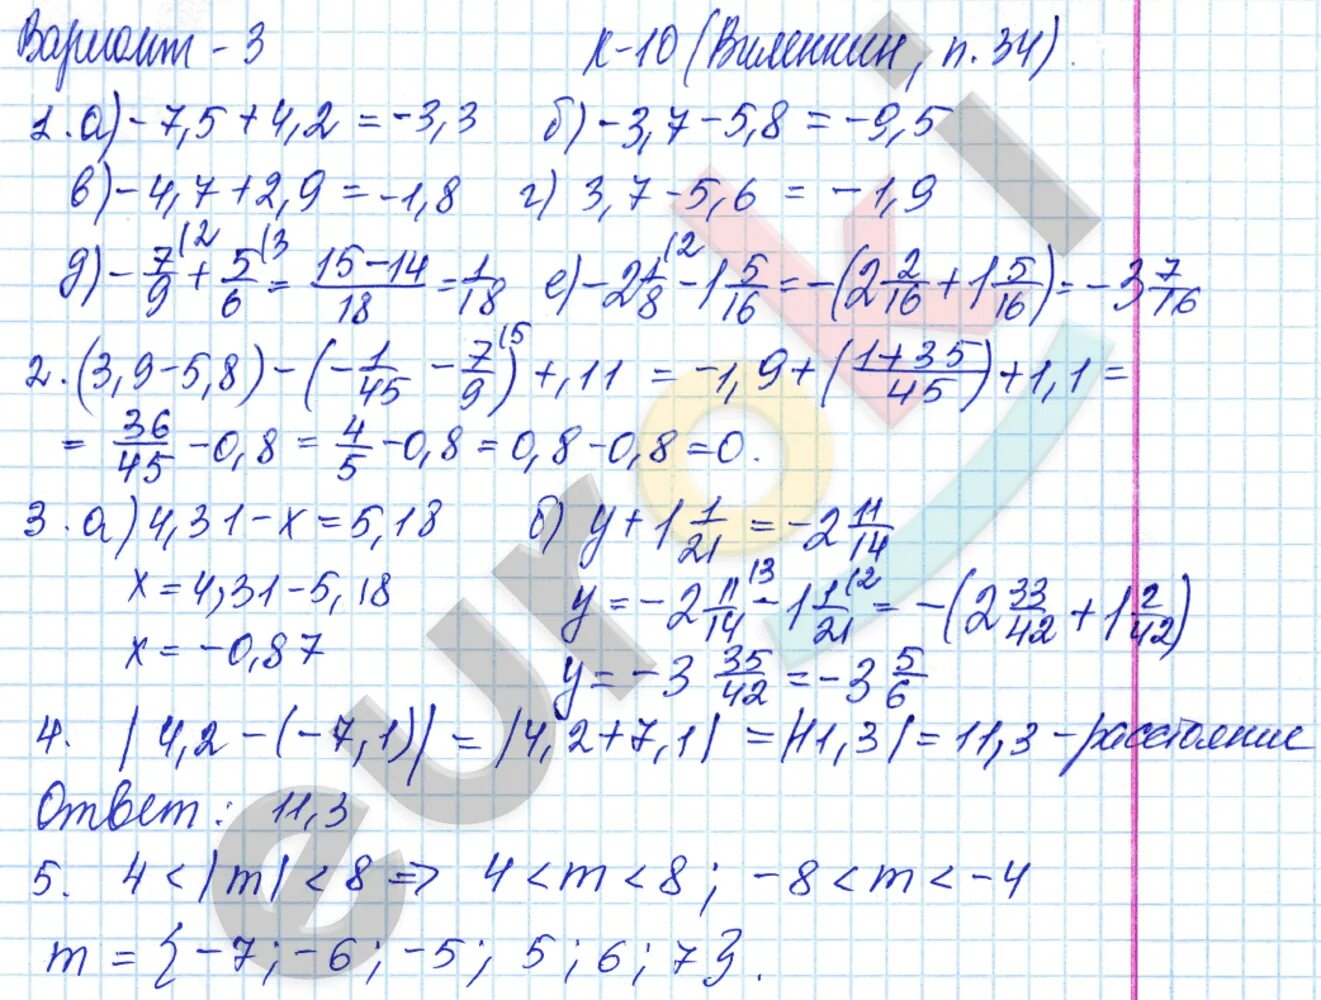 Вариант - 3 К-10 (Виленкин, п. 34).
1. а) -7,5 + 4,2 = -3,3 б) -3,7 - 5,8 = -9,5
в) -4,7 + 2,9 = -1,8 г) 3,7 - 5,6 = -1,9
д) -7/9 (2 + 5/6 (3 = (15-14)/18 = 1/18 е) -2 1/8 (2 - 1 5/16 = -(2 2/16 + 1 5/16) = -3 7/16
2. (3,9 - 5,8) - (-1/45 - 7/9 (5) + ,11 = -1,9 + ((1+35)/45) + 1,1 =
= 36/45 - 0,8 = 4/5 - 0,8 = 0,8 - 0,8 = 0.
3. а) 4,31 - x = 5,18 б) y + 1 1/21 = -2 11/14
x = 4,31 - 5,18 y = -2 11/14 (3 - 1 1/21 (2 = -(2 33/42 + 1 2/42)
x = -0,87 y = -3 35/42 = -3 5/6
4. |4,2 - (-7,1)| = |4,2 + 7,1| = |11,3| = 11,3 - расстояние
Ответ: 11,3
5. 4 < |m| < 8 => 4 < m < 8; -8 < m < -4
m = {-7; -6; -5; 5; 6; 7}.
euroki